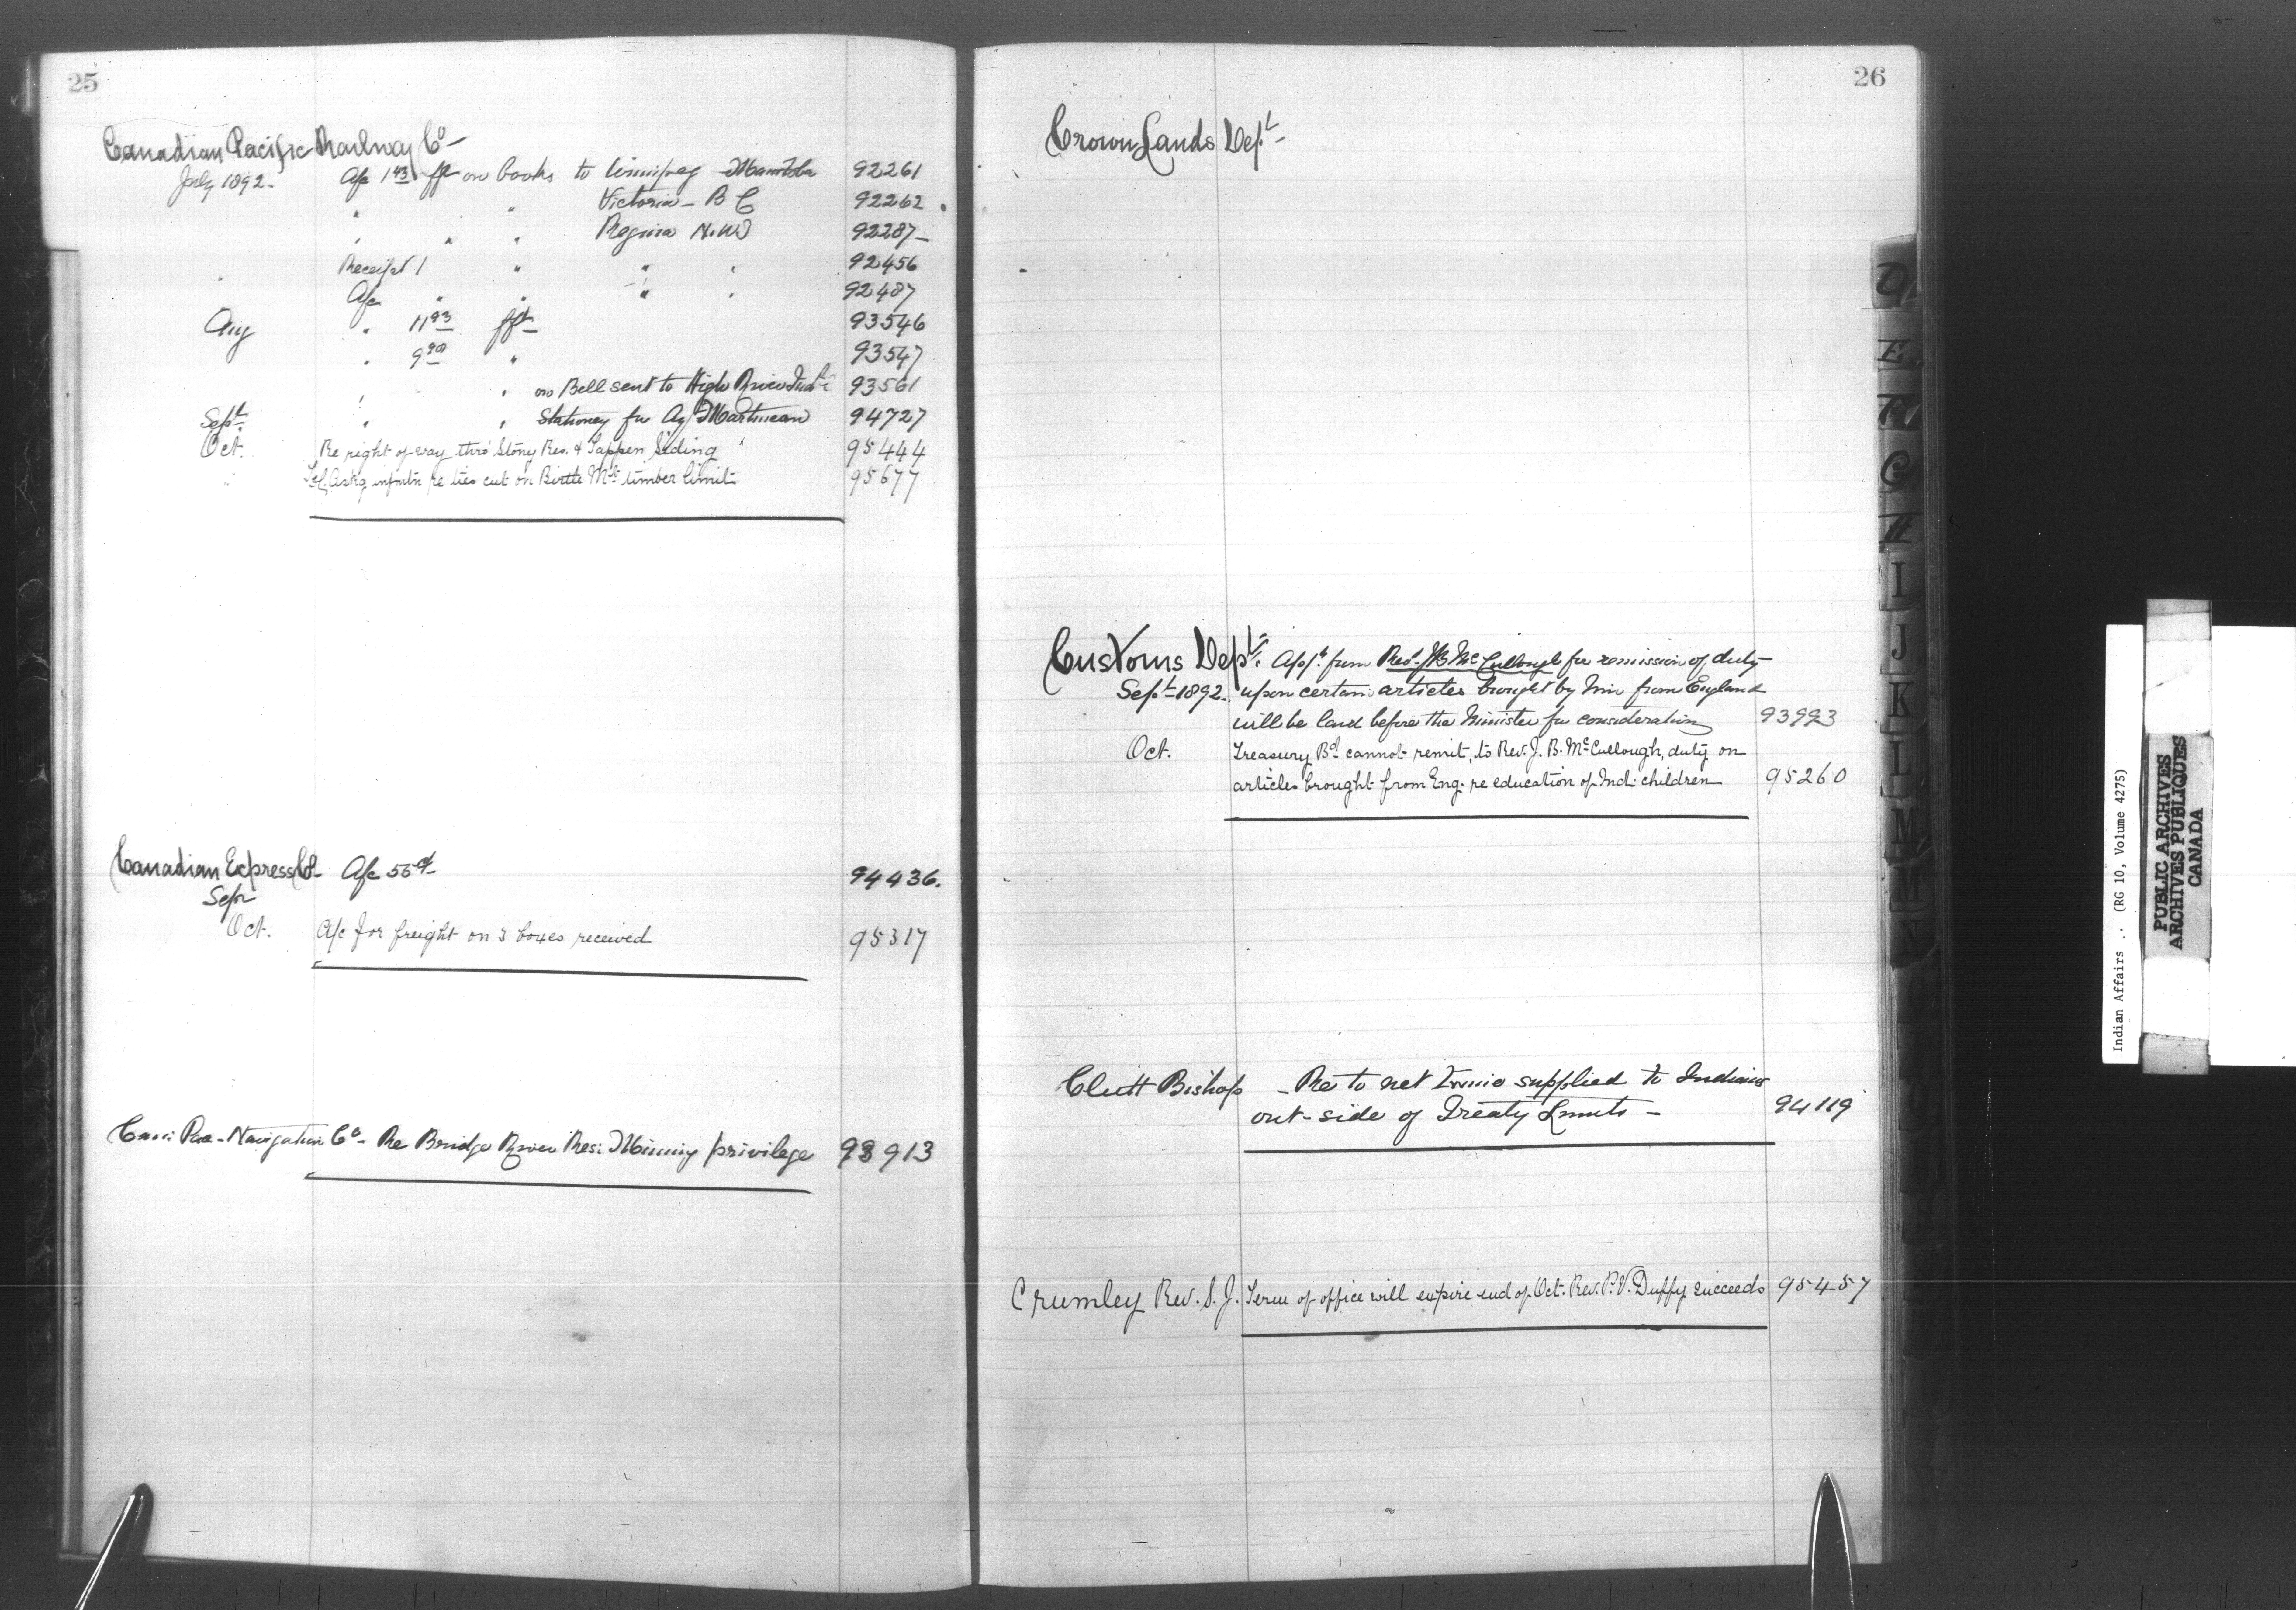 25
Canadian Pacific Railway Co -
July 1892 - A/c 1 43 frt on books to Winnipeg Manitoba 92261
" " Victoria - B C 92262
" " " Regina N.W 92287 -
" Receipt 1 " " " 92456
A/c " " " " 92487
Aug " 11 93 frt 93546
" 9 90 " 93547
" " on Bell sent to High River Indl 93561
Sept. " " Stationey for Agt Martineau 94727
Oct. Re right of way thro' Stony Res. & Tappen Siding 95444
" Tel. Askg infmtn re ties cut on Birtle Mts timber limit 95677
Canadian Express Co A/c 55 cts 94436.
Sepr
Oct. A/c for freight on 3 boxes received 95317
Navigation Co - Re Bridge River Res: Mining privilege 93913
26
Crown Lands Dept -
Customs Dept: App.n from Revd J B McCullough for remission of duty
Sept 1892. upon certain articles brought by him from England
will be laid before the Minister for consideration 93993
Oct. Treasury Bd cannot remit, to Rev. J. B. McCullough, duty on
articles brought from Eng. re education of Ind: children 95260
Clutt Bishop - Re to net twine supplied to Indians
out-side of Treaty Limits - 94119
Crumley Rev. S. J. Term of office will expire end of Oct. Rev. P. V. Duffy succeeds 95457
D
E
F
G
H
I
J
K
L
M
Mc
N
Indian Affairs . (RG 10, Volume 4275)
PUBLIC ARCHIVES
ARCHIVES PUBLIQUES
CANADA